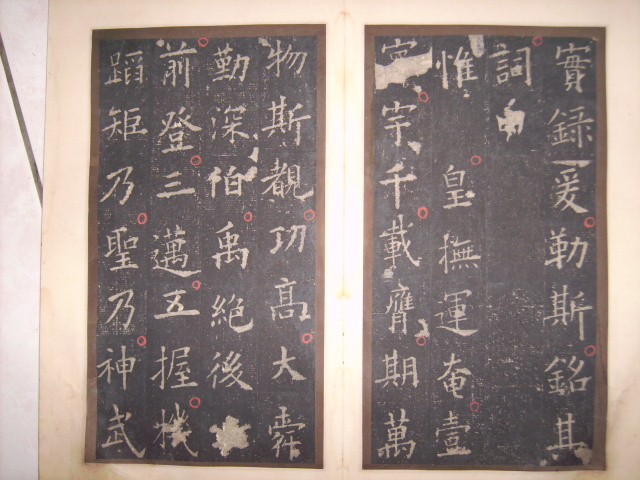 實錄爰勒斯銘其
詞
惟 皇撫運奄壹
寰宇千載膺期萬
物斯覩功高大舜
勤深伯禹絕後
前登三邁五握機
蹈矩乃聖乃神武